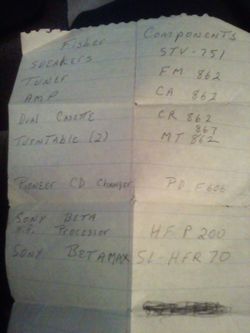 Fisher Components
SPEAKERS STV-751
TUNER FM 862
AMP CA 862
DUAL CASETTE CR 862
867
TURNTABLE (2) MT 862
PIONEER CD Changer PD F606
SONY BETA
PROCESSOR HFP 200
SONY BETAMAX SL-HFR70